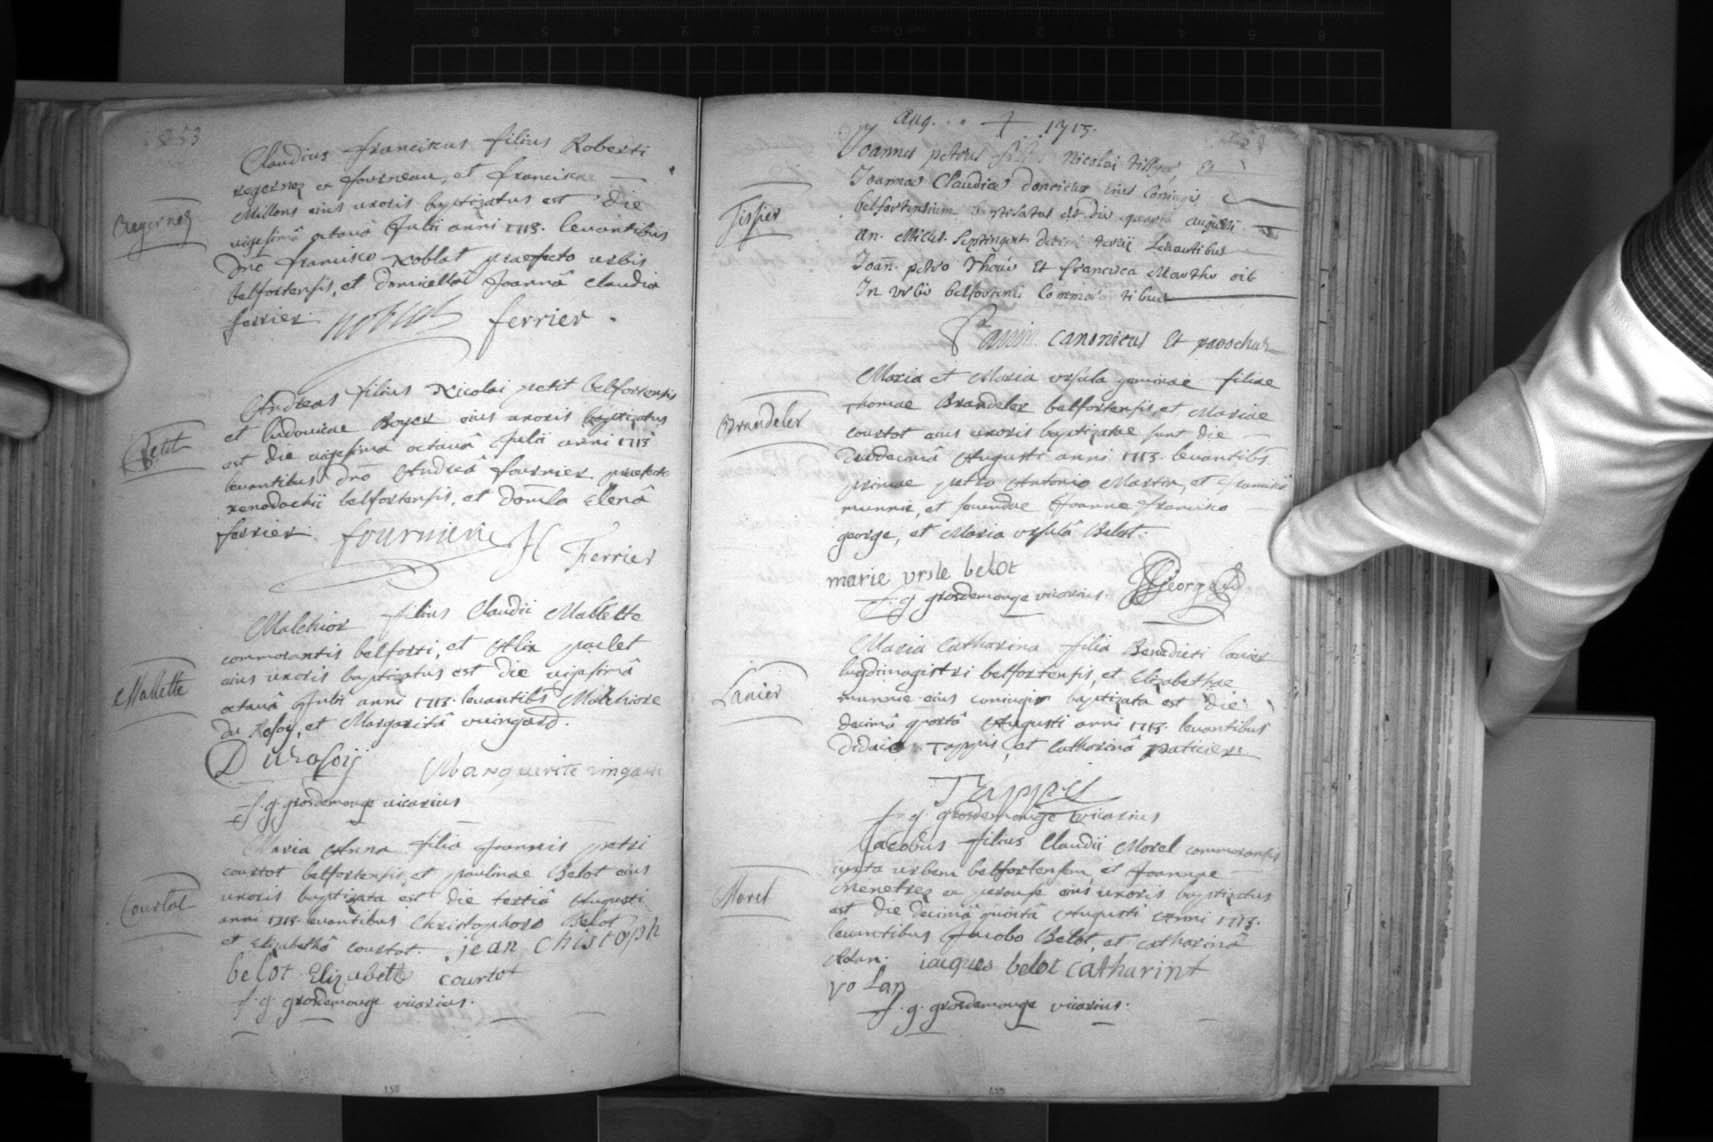 253
Claudius franciscus filius Roberti
ex fourneau, et franciscae
Millons eius uxoris baptizatus est die
vigesimâ octavâ Julii anni 1713. levantibus
Dnō francisco Noblat praefecto urbis
belfortensis, et domicella Joannâ Claudia
ferrier. noblat ferrier.
Andreas filius Nicolai petit belfortensis
Petit
et ludovicae Boyer eius uxoris baptizatus
est die vigesimâ octavâ Julii anni 1713
levantibus Dnō Andreâ fournier praefecto
xenodochii belfortensis, et Domla Elenâ
ferrier. fournier H Ferrier
Malchior filius Claudii Mallette
commorantis belforti, et Alix paclet
Mallette
eius uxoris baptizatus est die vigesimâ
octavâ Julii anni 1713. levantibs Malchiore
Du Rosoy, et Margaritâ vuingard.
Durosoy Marguerite
f. g. grosdemouge vicarius
Maria Anna filia Joannis petri
courtot belfortensis, et paulinae Belot eius
Courtot
uxoris baptizata est die tertiâ Augusti
anni 1713. levantibus Christophoro Belot
et Elizabethâ courtot. jean Christoph
belot Elizabeth courtot
f. g. grosdemouge vicarius.
150
Aug. 1713.
Joannes petrus filius Nicolai Et
Joannae Claudiae eius Coniugis
Tissier
belfortensium baptizatus est die quarta augusti
an. Milles. Septingent. decimi tertii Levantibus
Joan. petro Et francisca oib
In urbe belfortensi Commorantibus
canonicus Et parochus
Maria et Maria ursula geminae filiae
Thomae Brandeler belfortensis, et Mariae
Brandeler
courtot eius uxoris baptizatae sunt die
duodecimâ Augusti anni 1713. levantibs
primae petro Antonio Martin, et
munnie, et secundae Joanne francisco
george, et Maria ursulâ Belot.
marie ursle belot George
f. g. grosdemouge vicarius.
Maria Catharina filia Benedicti lanier
ludimagistri belfortensis, et Elizabethae
Lanier
munnie eius coniugis baptizata est die
decimâ quartâ Augusti anni 1713. levantibus
Didaco Tappis, et Catharinâ paticier.
Tappis
f. g. grosdemouge vicarius
Jacobus filius Claudii Morel commorantis
iuxta urbem belfortensem, et Joannae
Morel
Menetrez ex perouse eius uxoris baptizatus
est die decimâ quintâ Augusti anni 1713.
levantibus Jacobo Belot, et catharinâ
iacques belot catharint
volan
f. g. grosdemouge vicarius.